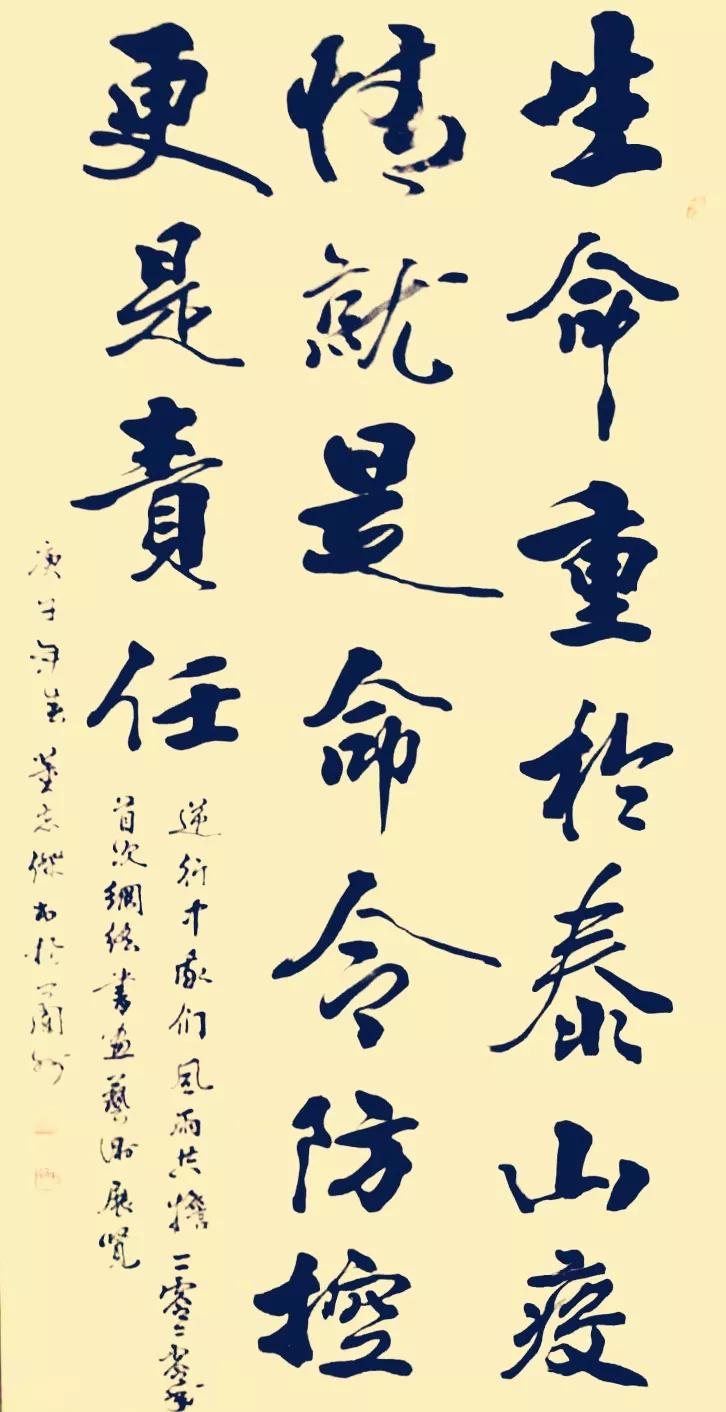 生命重於泰山疫
情就是命令防控
更是責任
逆行中我们风雨共擔二零二零我
首次網絡書画藝術展覽
庚子年春董志傑书於蘭州